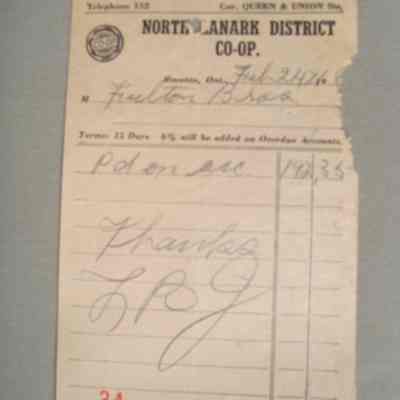 Telephone 152 Cor. QUEEN & UNION Sts.
NORTH LANARK DISTRICT
CO-OP.
Ont., Feb 24
M Fulton Bros
Terms: 15 Days 6% will be added on Overdue Accounts.
Pd on acc 142.35
Thanks
34